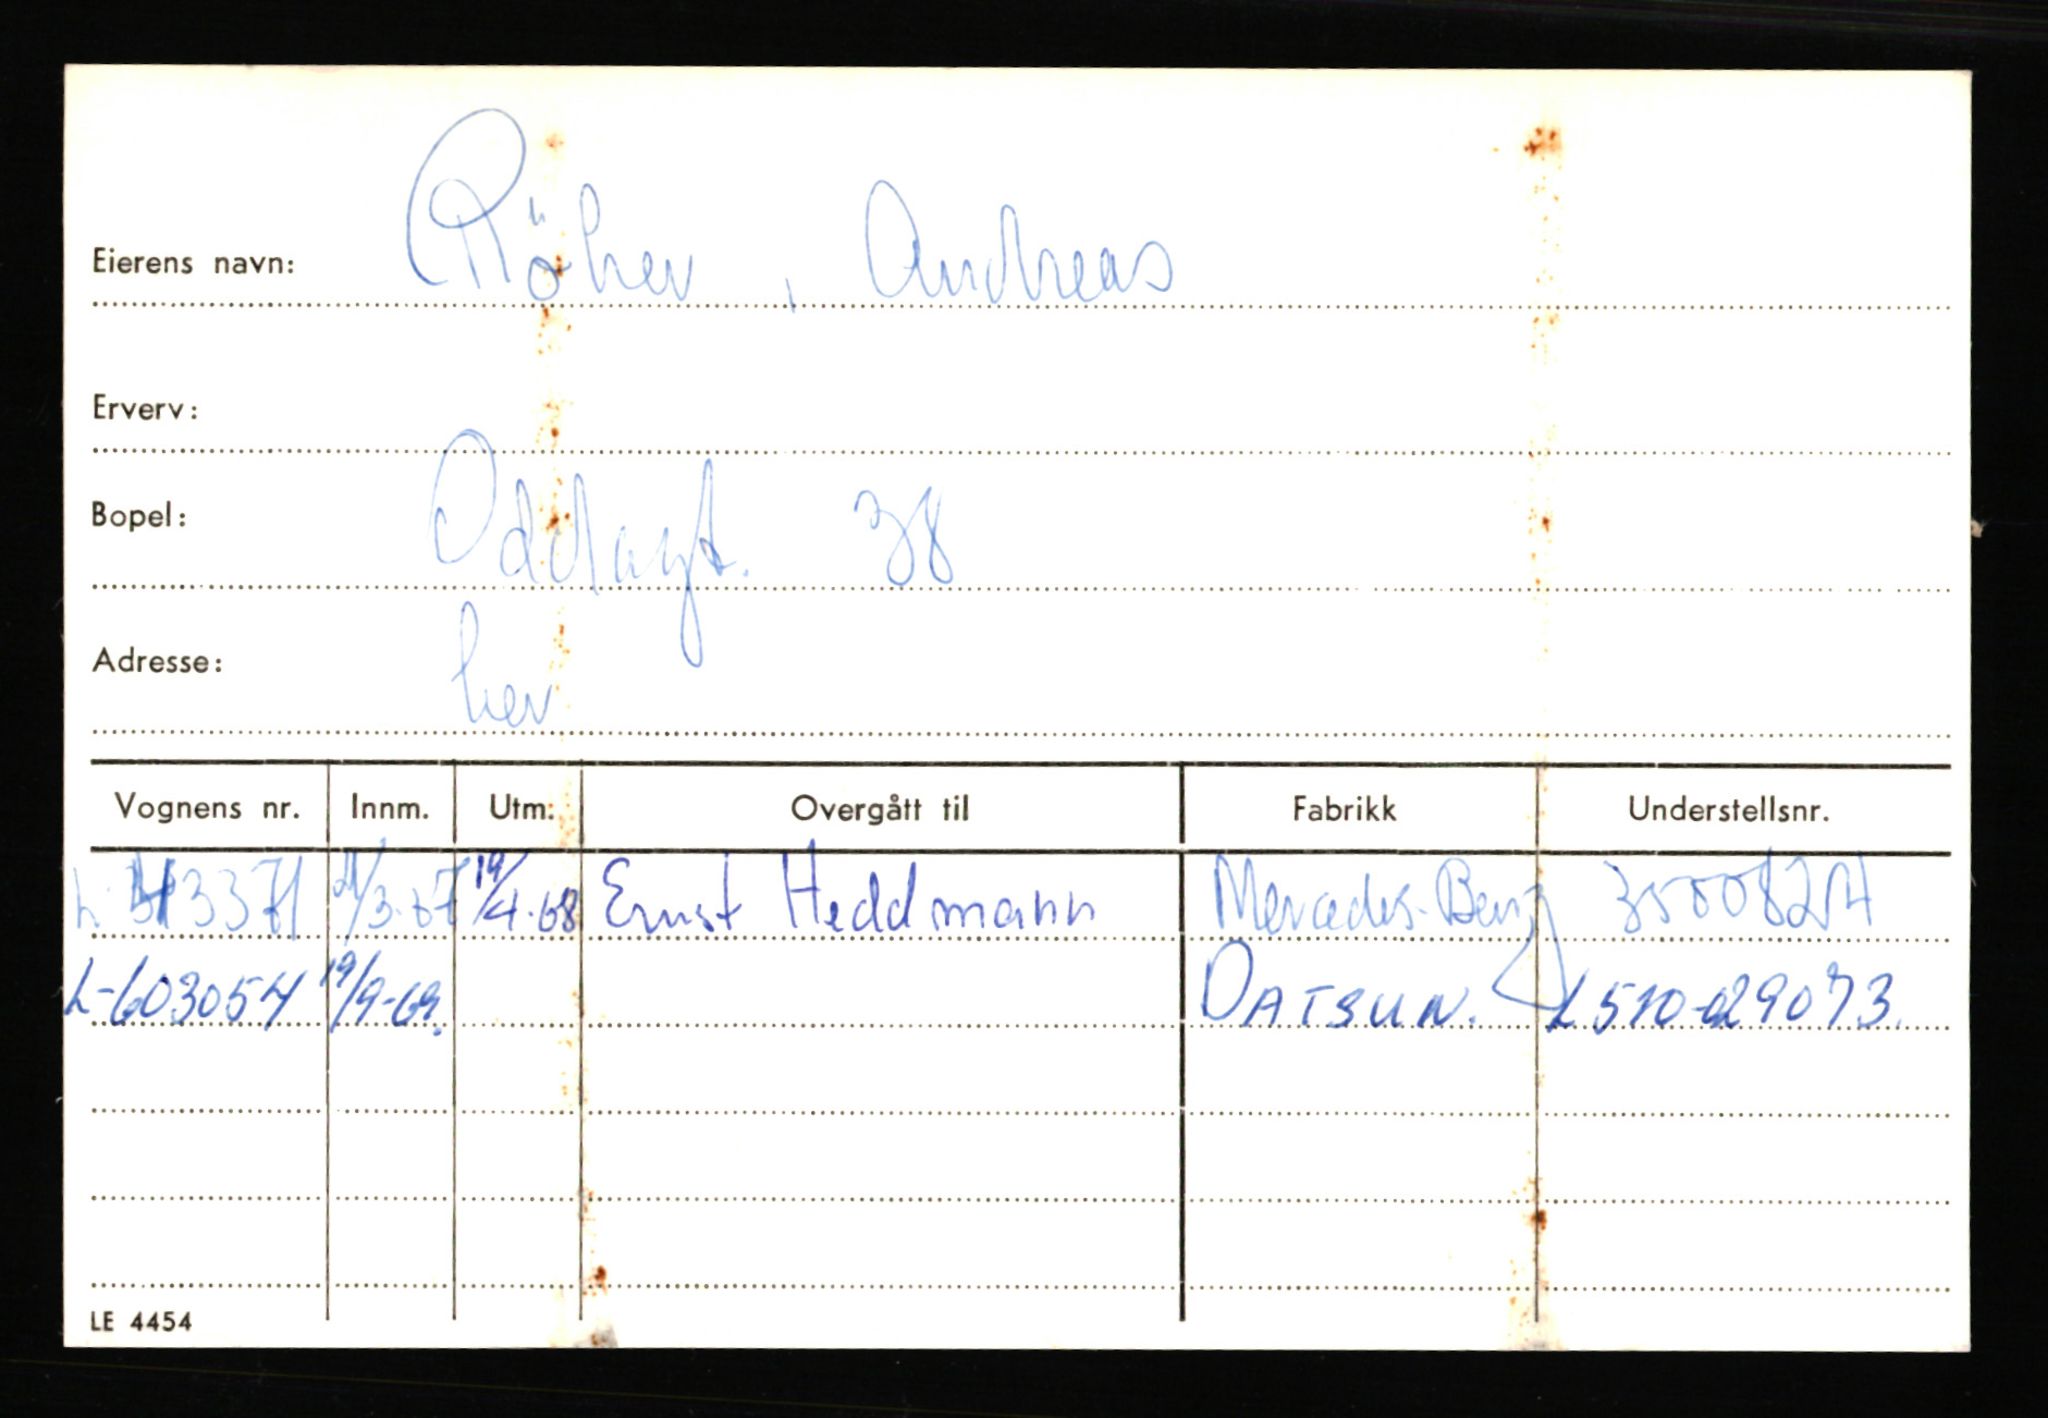 Eierens navn: Röher, Andreas
Erverv:
Bopel: Oddagt. 38
Adresse: her
Vognens nr. Innm. Utm. Overgått til Fabrikk Understellsnr.
19/4-68 Ernst Heddmann Mercedes-Benz
L-603054 19/9-69. DATSUN. L510-029073.
LE 4454